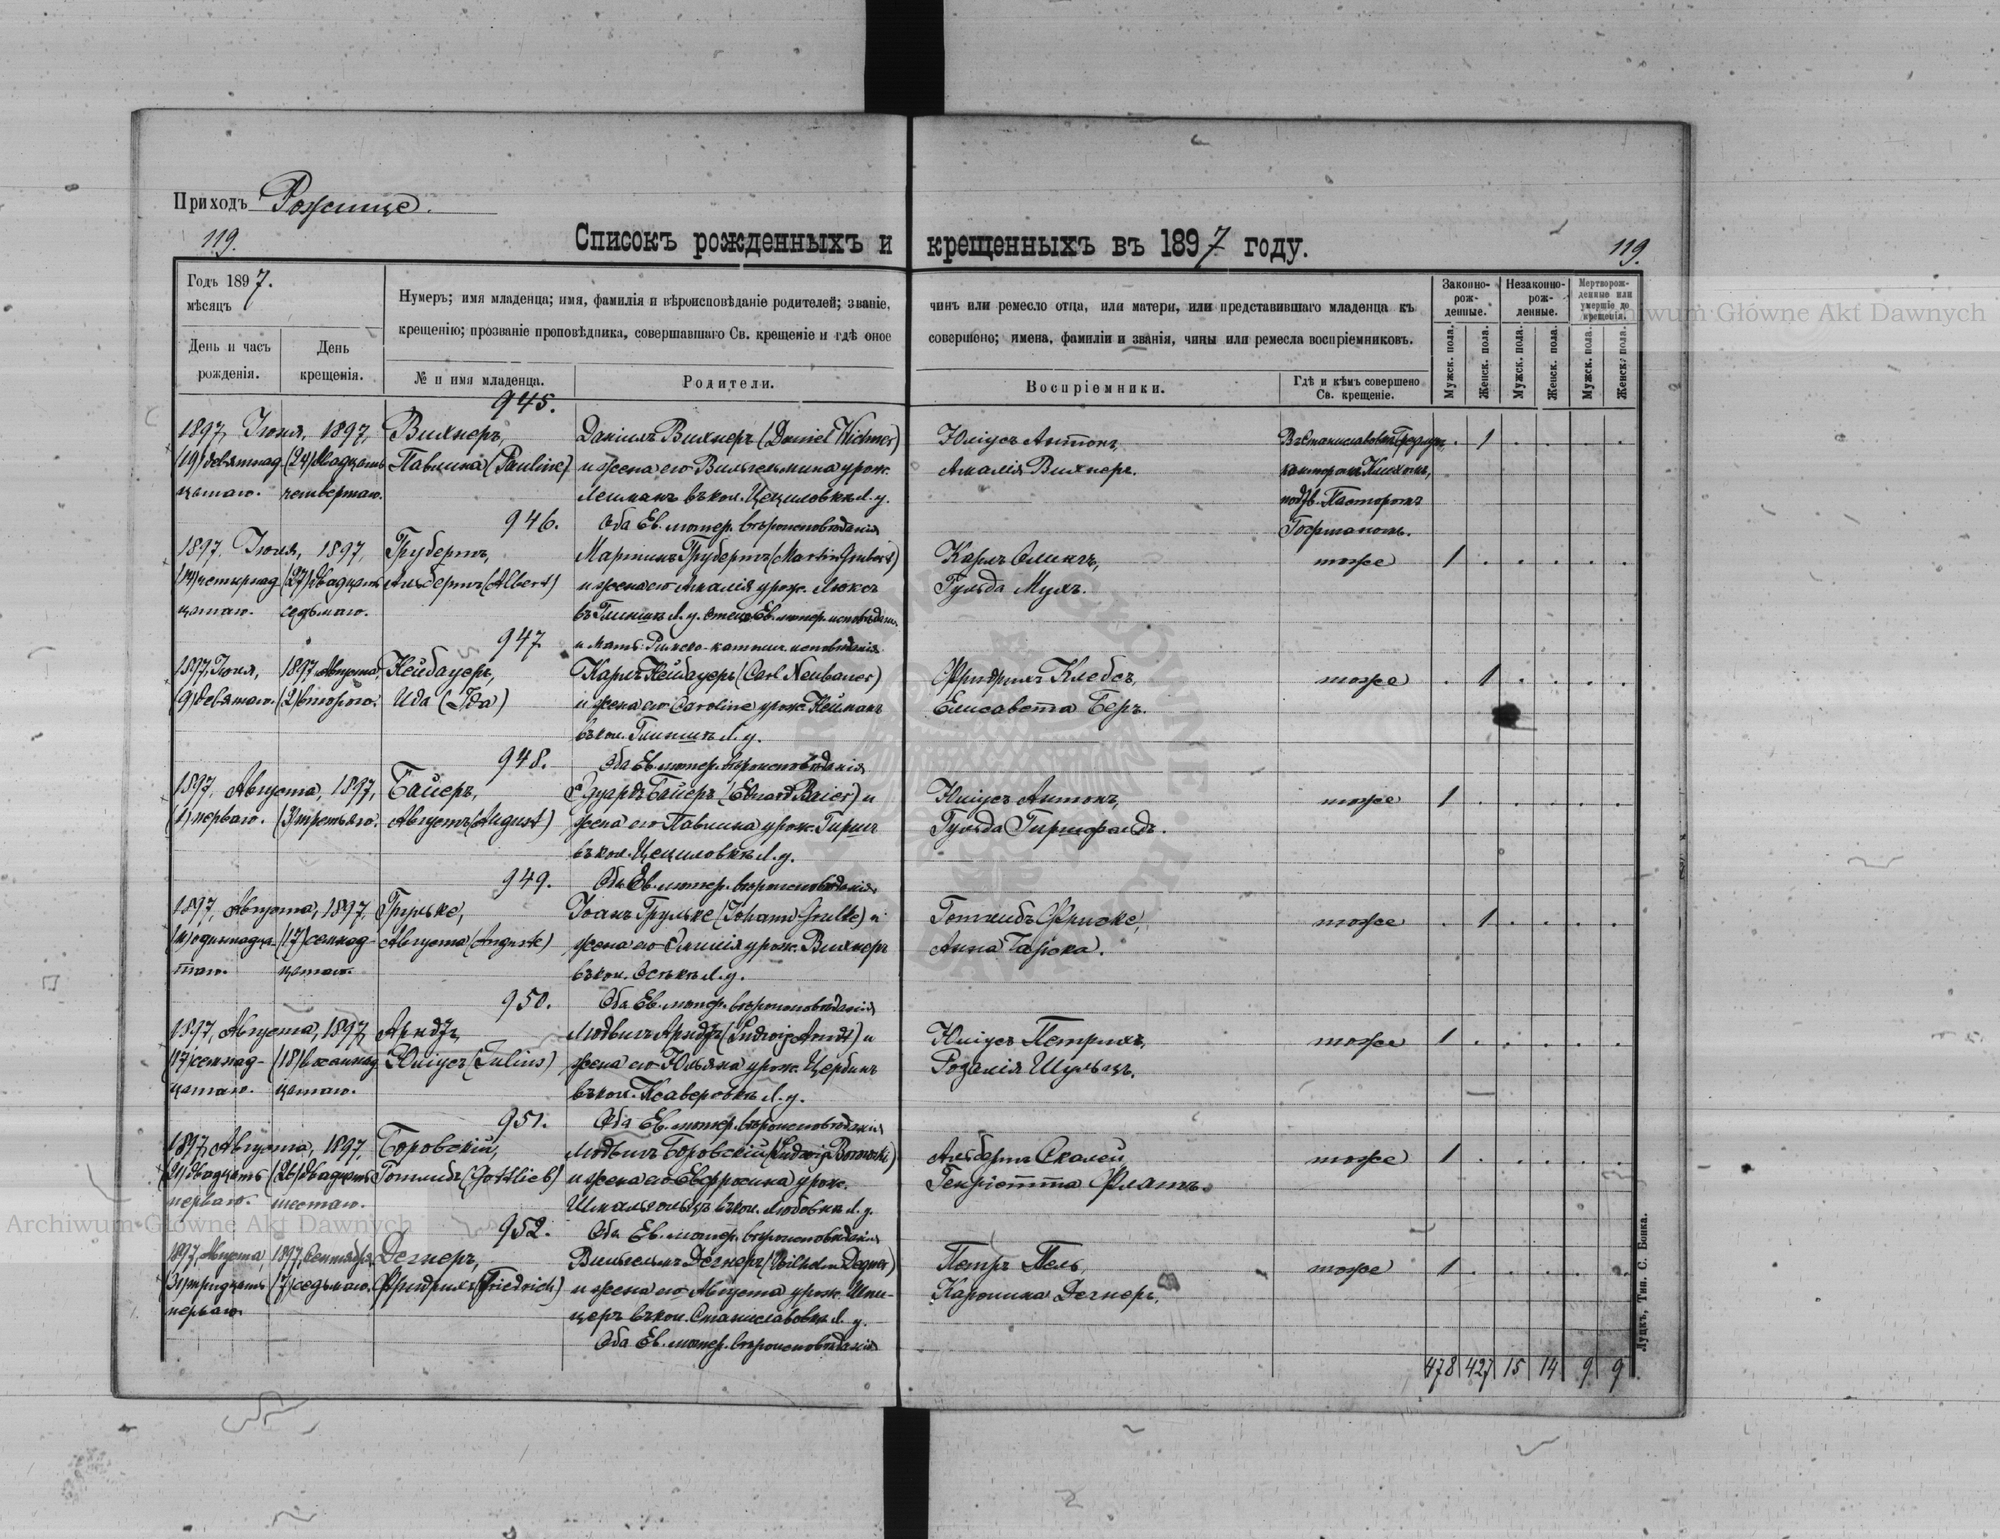 Приходъ Рожище.
119.
Списокъ рожденныхъ и крещенныхъ въ 1897 году.
119.
Годъ 1897.
мѣсяцъ
День и часъ рожденія.
День крещенія.
Нумеръ; имя младенца; имя, фамилія и вѣроисповѣданіе родителей; званіе, чинъ или ремесло отца, или матери, или представившаго младенца къ
крещенію; прозваніе проповѣдника, совершавшаго Св. крещеніе и гдѣ оное совершено; имена, фамиліи и званія, чины или ремесла воспріемниковъ.
№ и имя младенца.
Родители.
Воспріемники.
Гдѣ и кѣмъ совершено Св. крещеніе.
Законно-рожденные.
Незаконно-рожденные.
Мертворожденные или умершіе до крещенія.
Мужск. пола.
Женск. пола.
Мужск. пола.
Женск. пола.
Мужск. пола.
Женск. пола.
945.
1897, Іюня, 1897, Вихнеръ, Даніилъ Вихнеръ (Daniel Wichner) Юліусъ Антонъ, 1
(19) девятнад (24) двадцать Павлина (Pauline) и жена его Вильгельмина урож. Амалія Вихнеръ. канторомъ
цатаго. четвертаго. Лешманъ въ кол. Цециловкѣ Л. у. подтв. Пасторомъ
946. Оба Ев. лютер. вѣроисповѣданія
1897, 1897, Грубертъ, Мартинъ Грубертъ (Martin Grubert) Карлъ тоже 1
(14) четырнад (27) двадцать Альбертъ (Albert) и жена его Амалія урож. Люксъ Гульда Мухъ.
цатаго. седьмаго. въ Л. у. отецъ Ев. лютер. исповѣданія
947 и мать Римско-катол. исповѣданія
1897, 1897, Августа, Нейбауеръ, Карлъ Нейбауеръ (Carl Neubauer) Фридрихъ Клебсъ, тоже 1
(9) девятаго. (2) втораго. Ида (Ida) и жена его Caroline урож. Нейманъ Елисавета Беръ.
въ кол. Л. у.
948. Оба Ев. лютер. вѣроисповѣданія
1897, Августа, 1897, Байеръ, Едуардъ Байеръ (Eduard Baier) и Юліусъ Антонъ, тоже 1
(1) перваго. (3) третьяго. Августъ (August) жена его Павлина урож. Гульда
въ кол. Цециловкѣ Л. у.
949. Оба Ев. лютер. вѣроисповѣданія
1897, Августа, 1897, Грульке, Іоанъ Грульке (Johann Grulke) и Готлибъ Фриске, тоже 1
(11) одиннадца- (17) семнад- Августа (Auguste) жена его Емилія урож. Вихнеръ Анна
таго. цатаго. въ кол. Л. у.
950. Оба Ев. лютер. вѣроисповѣданія
1897, Августа, 1897, Арндтъ, Людвигъ Арндтъ (Ludwig Arndt) и Юліусъ Петрихъ, тоже 1
(17) семнад- (18) восемнад Юліусъ (Julius) жена его Юльяна урож. Цербинъ Розалія Шульцъ.
цатаго. цатаго. въ кол. Ксаверовкѣ Л. у.
951. Оба Ев. лютер. вѣроисповѣданія
1897, Августа, 1897, Боровскій, Людвигъ Боровскій (Ludwig Borowski) Альбертъ Скалей, тоже 1
(21) двадцать (26) двадцать Готлибъ (Gottlieb) и жена его Евфросина урож. Генріетта Флатъ.
перваго. шестаго. въ кол. Любовкѣ Л. у.
952. Оба Ев. лютер. вѣроисповѣданія
1897, Августа, 1897, Сентября, Дегнеръ, Вильгельмъ Дегнеръ (Wilhelm Degner) Петръ Пель, тоже 1
(31) тридцать (7) седьмаго. Фридрихъ (Friedrich) и жена его Августа урож. Шпи- Каролина Дегнеръ.
перваго церъ въ кол. Станиславовкѣ Л. у.
Оба Ев. лютер. вѣроисповѣданія
478 427 15 14 9 9
Луцкъ, Тип. С. Бонка.
Archiwum Główne Akt Dawnych
Archiwum Główne Akt Dawnych